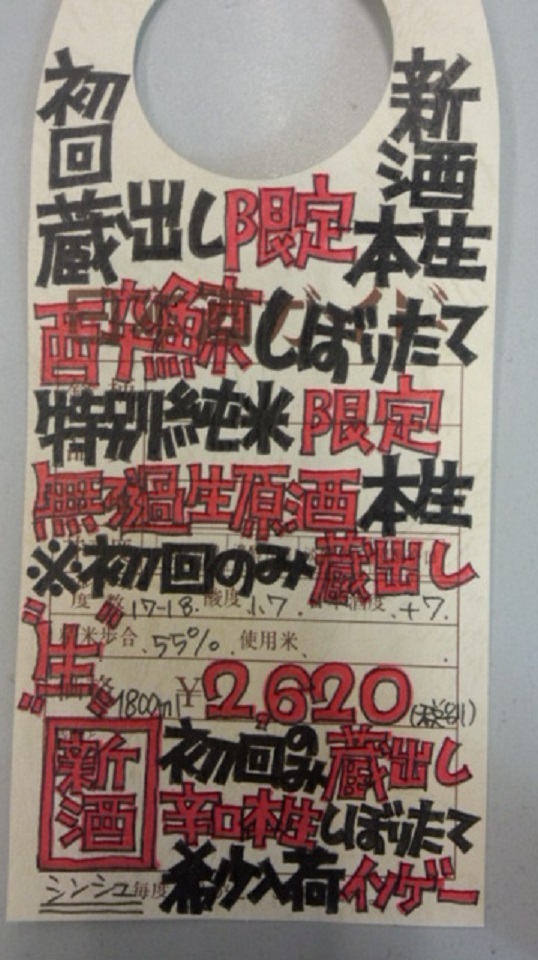 初回
新酒
蔵出し限定本生
酔鯨しぼりたて
特別純米限定
無濾過生原酒本生
※初回のみ蔵出し
度数 17-18. 酸度 1.7 日本酒度 +7.
精米歩合 55% 使用米
"生"
1800ml ¥2,620(税別)
新酒
初回のみ蔵出し
辛口本生しぼりたて
希少入荷
シンシュ 毎度